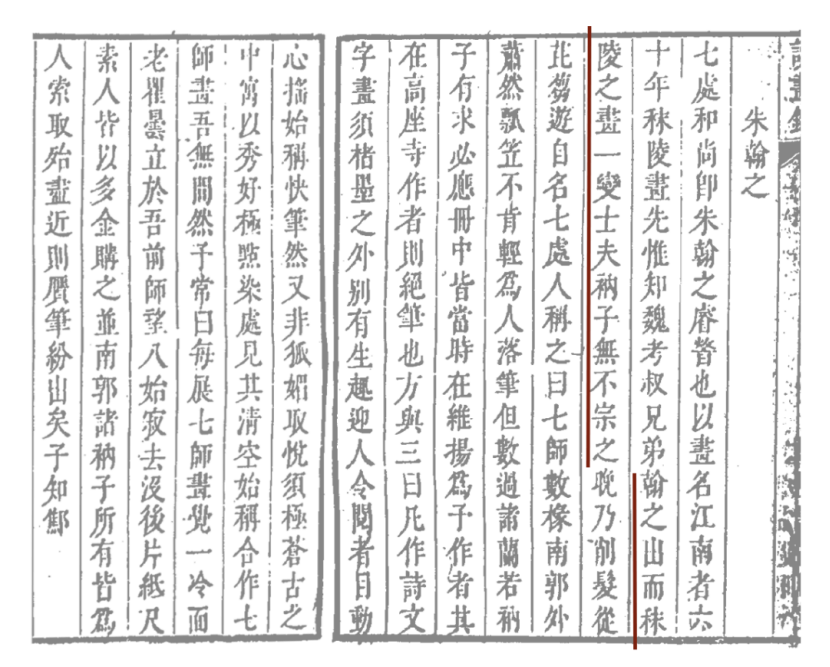 朱翰之
七處和尚卽朱翰之睿瞀也以畫名江南者六
十年秣陵畫先惟知魏考叔兄弟翰之出而秣
陵之畫一變士夫衲子無不宗之晚乃削髮從
苾芻遊自名七處人稱之曰七師數椽南郭外
蕭然瓢笠不肯輕爲人落筆但數過諸蘭若衲
子有求必應冊中皆當時在維揚爲予作者其
在高座寺作者則絕筆也方與三曰凡作詩文
字畫須楮墨之外別有生趣迎人令閱者目動
心搖始稱快筆然又非狐媚取悅須極蒼古之
中寓以秀好極點染處見其清空始稱合作七
師畫吾無間然予常曰每展七師畫覺一冷面
老瞿曇立於吾前師望八始寂去沒後片紙尺
素人皆以多金購之並南郭諸衲子所有皆爲
人索取殆盡近則贗筆紛出矣予知